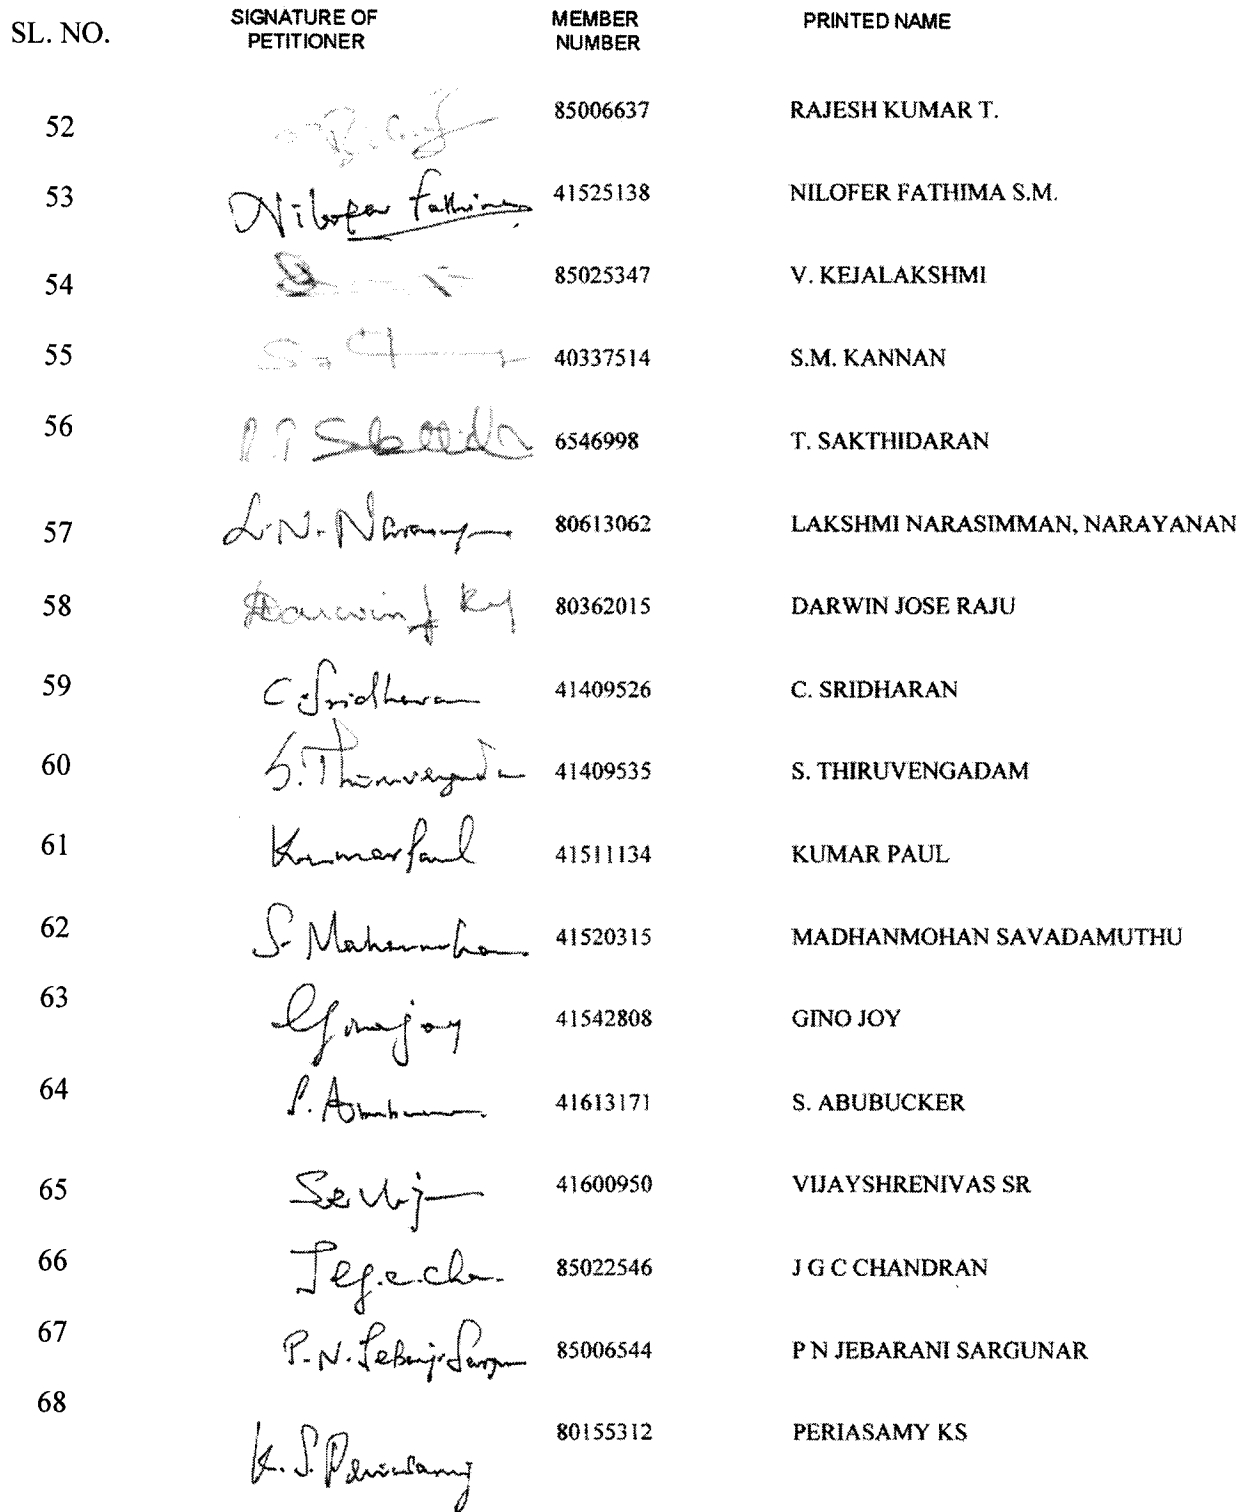 SL. NO. SIGNATURE OF PETITIONER MEMBER NUMBER PRINTED NAME
52 85006637 RAJESH KUMAR T.
53 Nilofer Fathima 41525138 NILOFER FATHIMA S.M.
54 85025347 V. KEJALAKSHMI
55 40337514 S.M. KANNAN
56 6546998 T. SAKTHIDARAN
57 L.N. Narayan 80613062 LAKSHMI NARASIMMAN, NARAYANAN
58 Darwin J 80362015 DARWIN JOSE RAJU
59 C. Sridharan 41409526 C. SRIDHARAN
60 S. Thiruvengada 41409535 S. THIRUVENGADAM
61 Kumar Paul 41511134 KUMAR PAUL
62 S. 41520315 MADHANMOHAN SAVADAMUTHU
63 Gino Joy 41542808 GINO JOY
64 41613171 S. ABUBUCKER
65 41600950 VIJAYSHRENIVAS SR
66 85022546 J G C CHANDRAN
67 P. N. 85006544 P N JEBARANI SARGUNAR
68 K. S. Periasamy 80155312 PERIASAMY KS